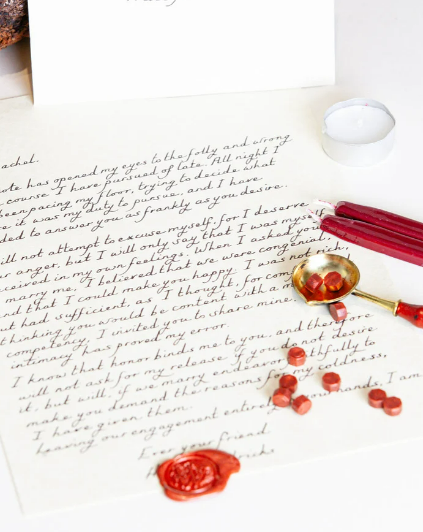 achel.
ote has opened my eyes to the folly and wrong
course I have pursued of late. All night I
been pacing my floor, trying to decide what
e it was my duty to pursue, and I have
ded to answer you as frankly as you desire.
ill not attempt to excuse myself, for I deserve
r anger, but I will only say that I was myse
ceived in my own feelings. When I asked you
marry me, I believed that we were congenial,
nd that I could make you happy. I was not rich,
ut had sufficient, as I thought, for com
thinking you would be content with a m
competency, I invited you to share mine.
intimacy has proved my error.
I know that honor binds me to you, and therefore
will not ask for my release if you do not desire
it, but will, if we marry endeavor faithfully to
make you demand the reasons for my coldness,
I have given them.
leaving our engagement entirely hands, I am
Ever your friend.